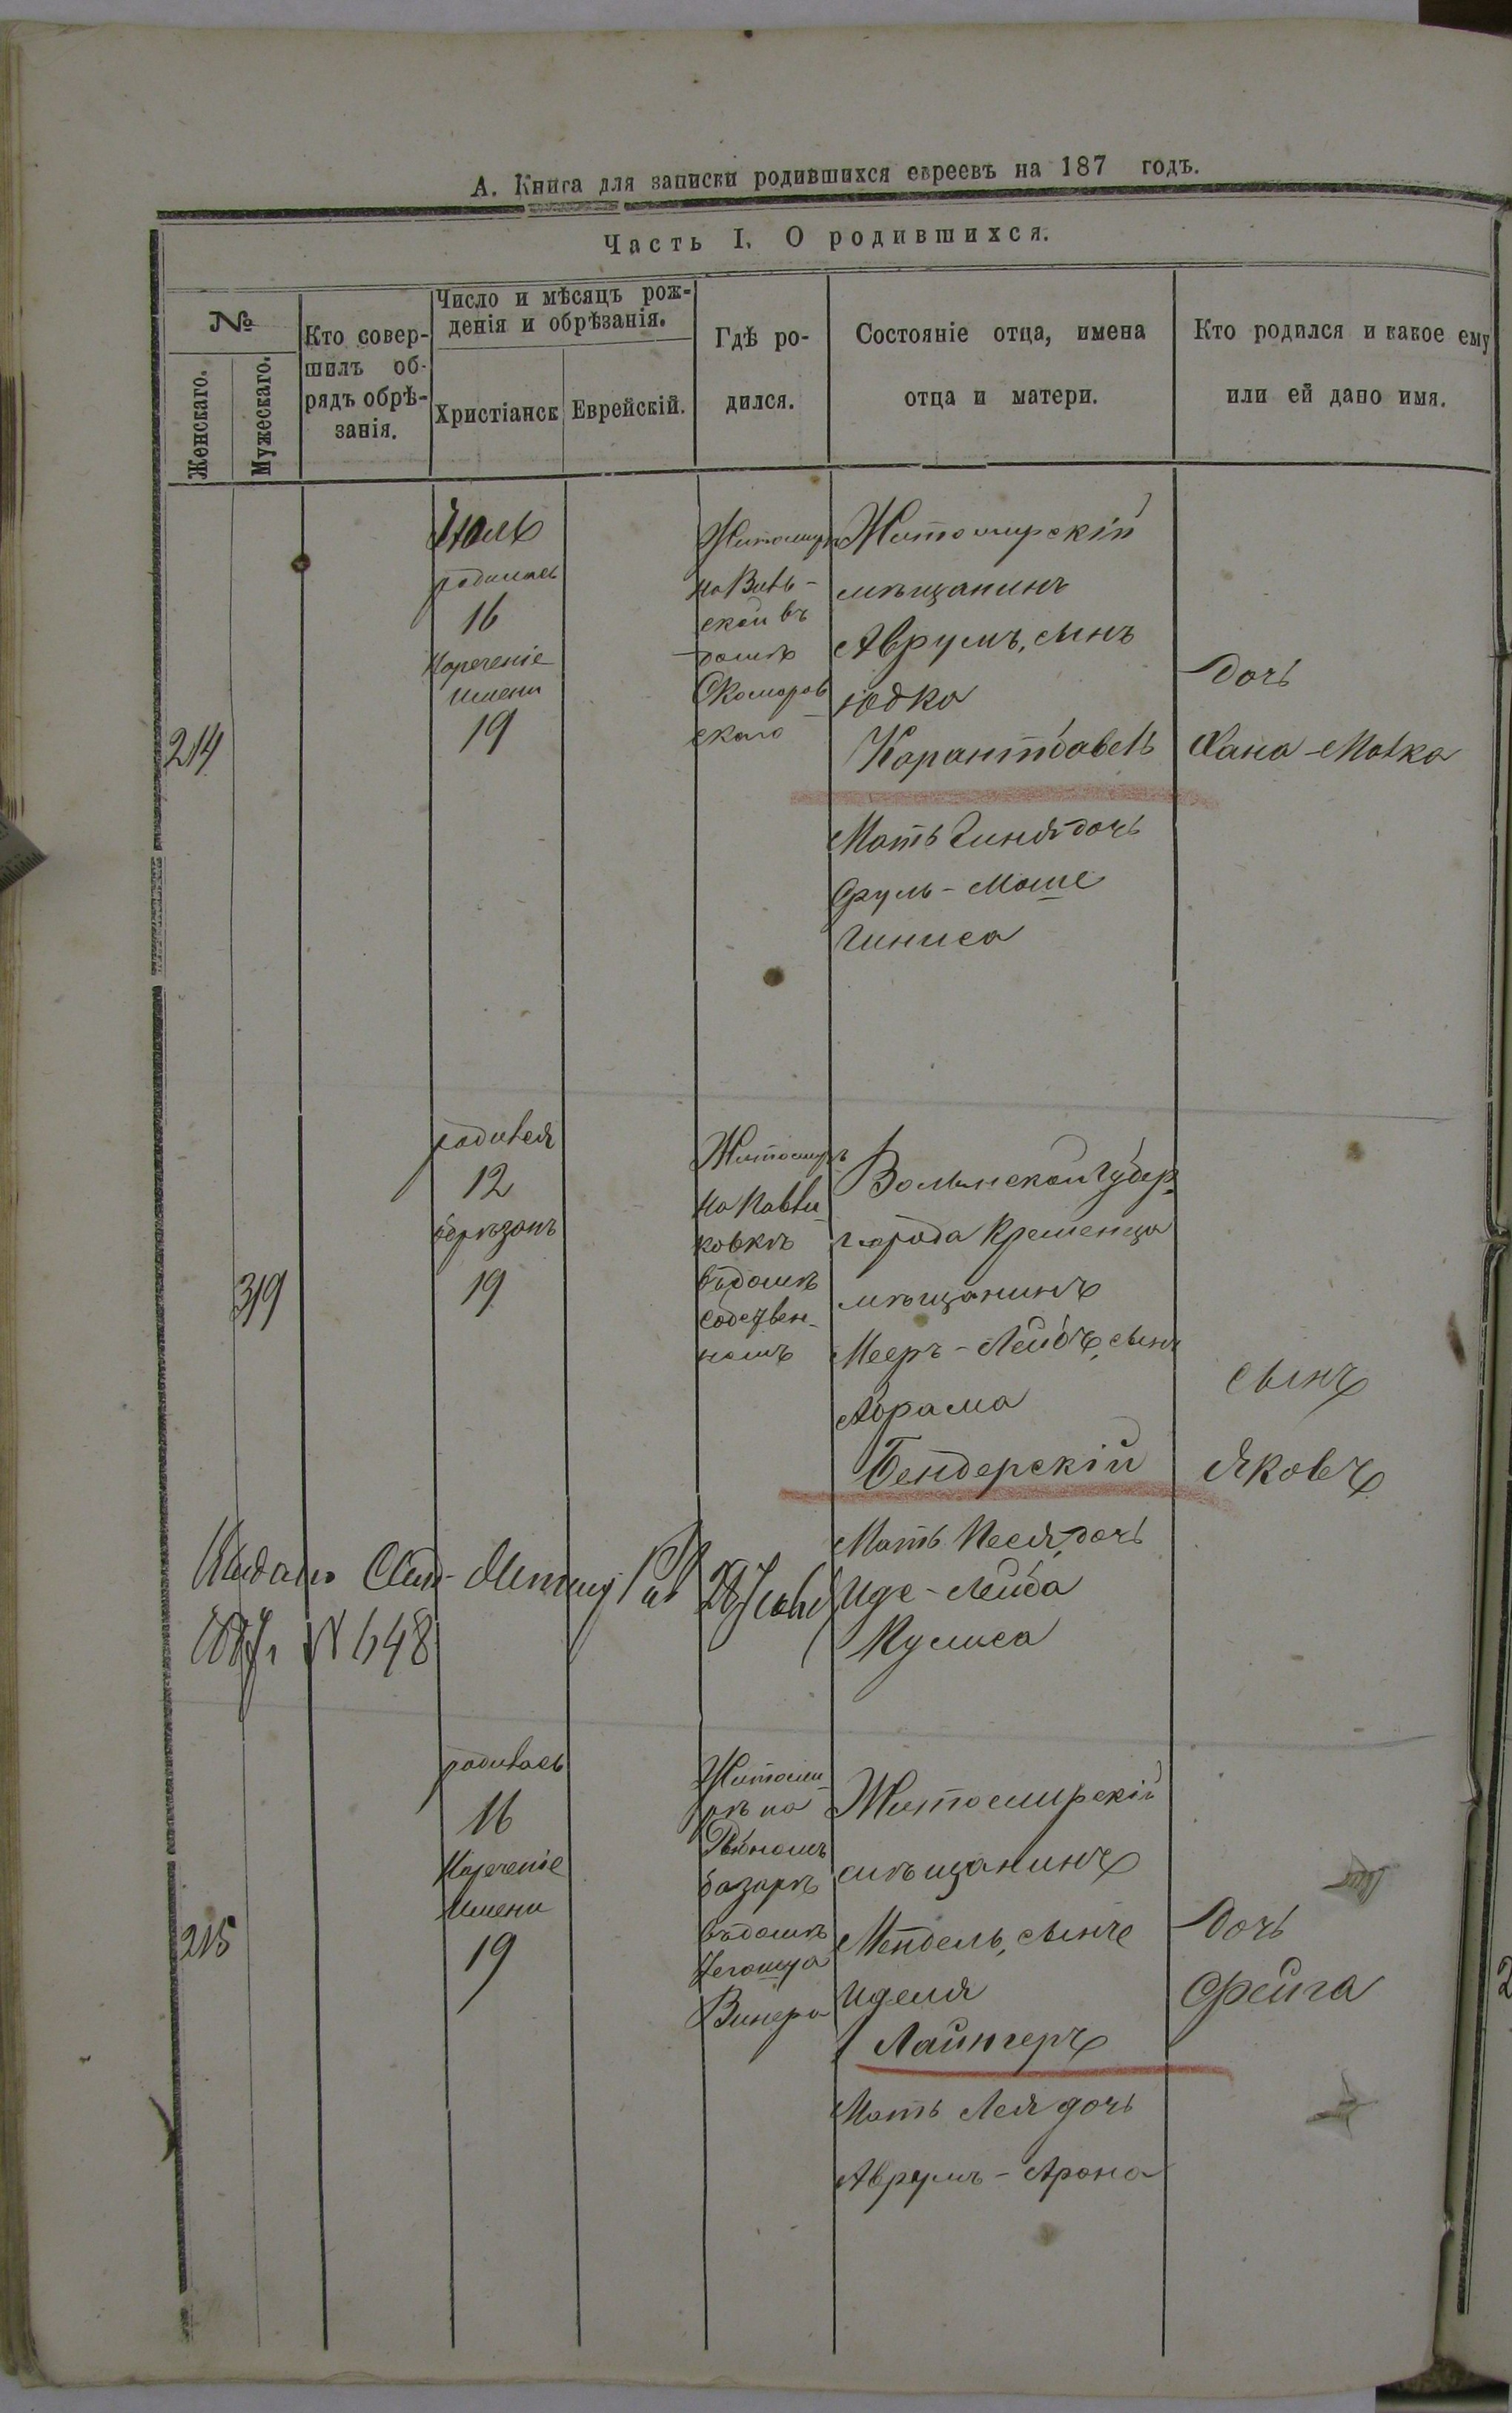 А. Книга для записки родившихся евреевъ на 187 годъ.
Часть I. О родившихся.
№
Женскаго.
Мужескаго.
Кто совер-
шилъ об-
рядъ обрѣ-
занія.
Число и мѣсяцъ рож-
денія и обрѣзанія.
Христіанск
Еврейскій.
Гдѣ ро-
дился.
Состояніе отца, имена
отца и матери.
Кто родился и какое ему
или ей дано имя.
214
родилась
16
Нареченіе
имени
19
Житомиръ
ской въ
домѣ
Скоморов
скаго
Житомирскій
мѣщанинъ
Аврумъ, сынъ
Юдко
Мать дочь
Сруль-Моше
Гиниса
Дочь
Хана-Малка
319
родился
12
обрѣзанъ
19
Житомиръ
на Павли-
ковкѣ
въ домѣ
собствен-
номъ
Волынской губер.
города Кременца
мѣщанинъ
Мееръ-Лейбъ, сынъ
Абрама
Бендерскій
Мать Песя, дочь
Иде-Лейба
Сынъ
Яковъ
№ 648
215
родилась
16
Нареченіе
имени
19
Житоми-
рѣ на
базарѣ
въ домѣ
Винера
Житомирскій
мѣщанинъ
Мендель, сынъ
Иделя
Мать Лея дочь
Аврумъ-Арона
Дочь
Фейга